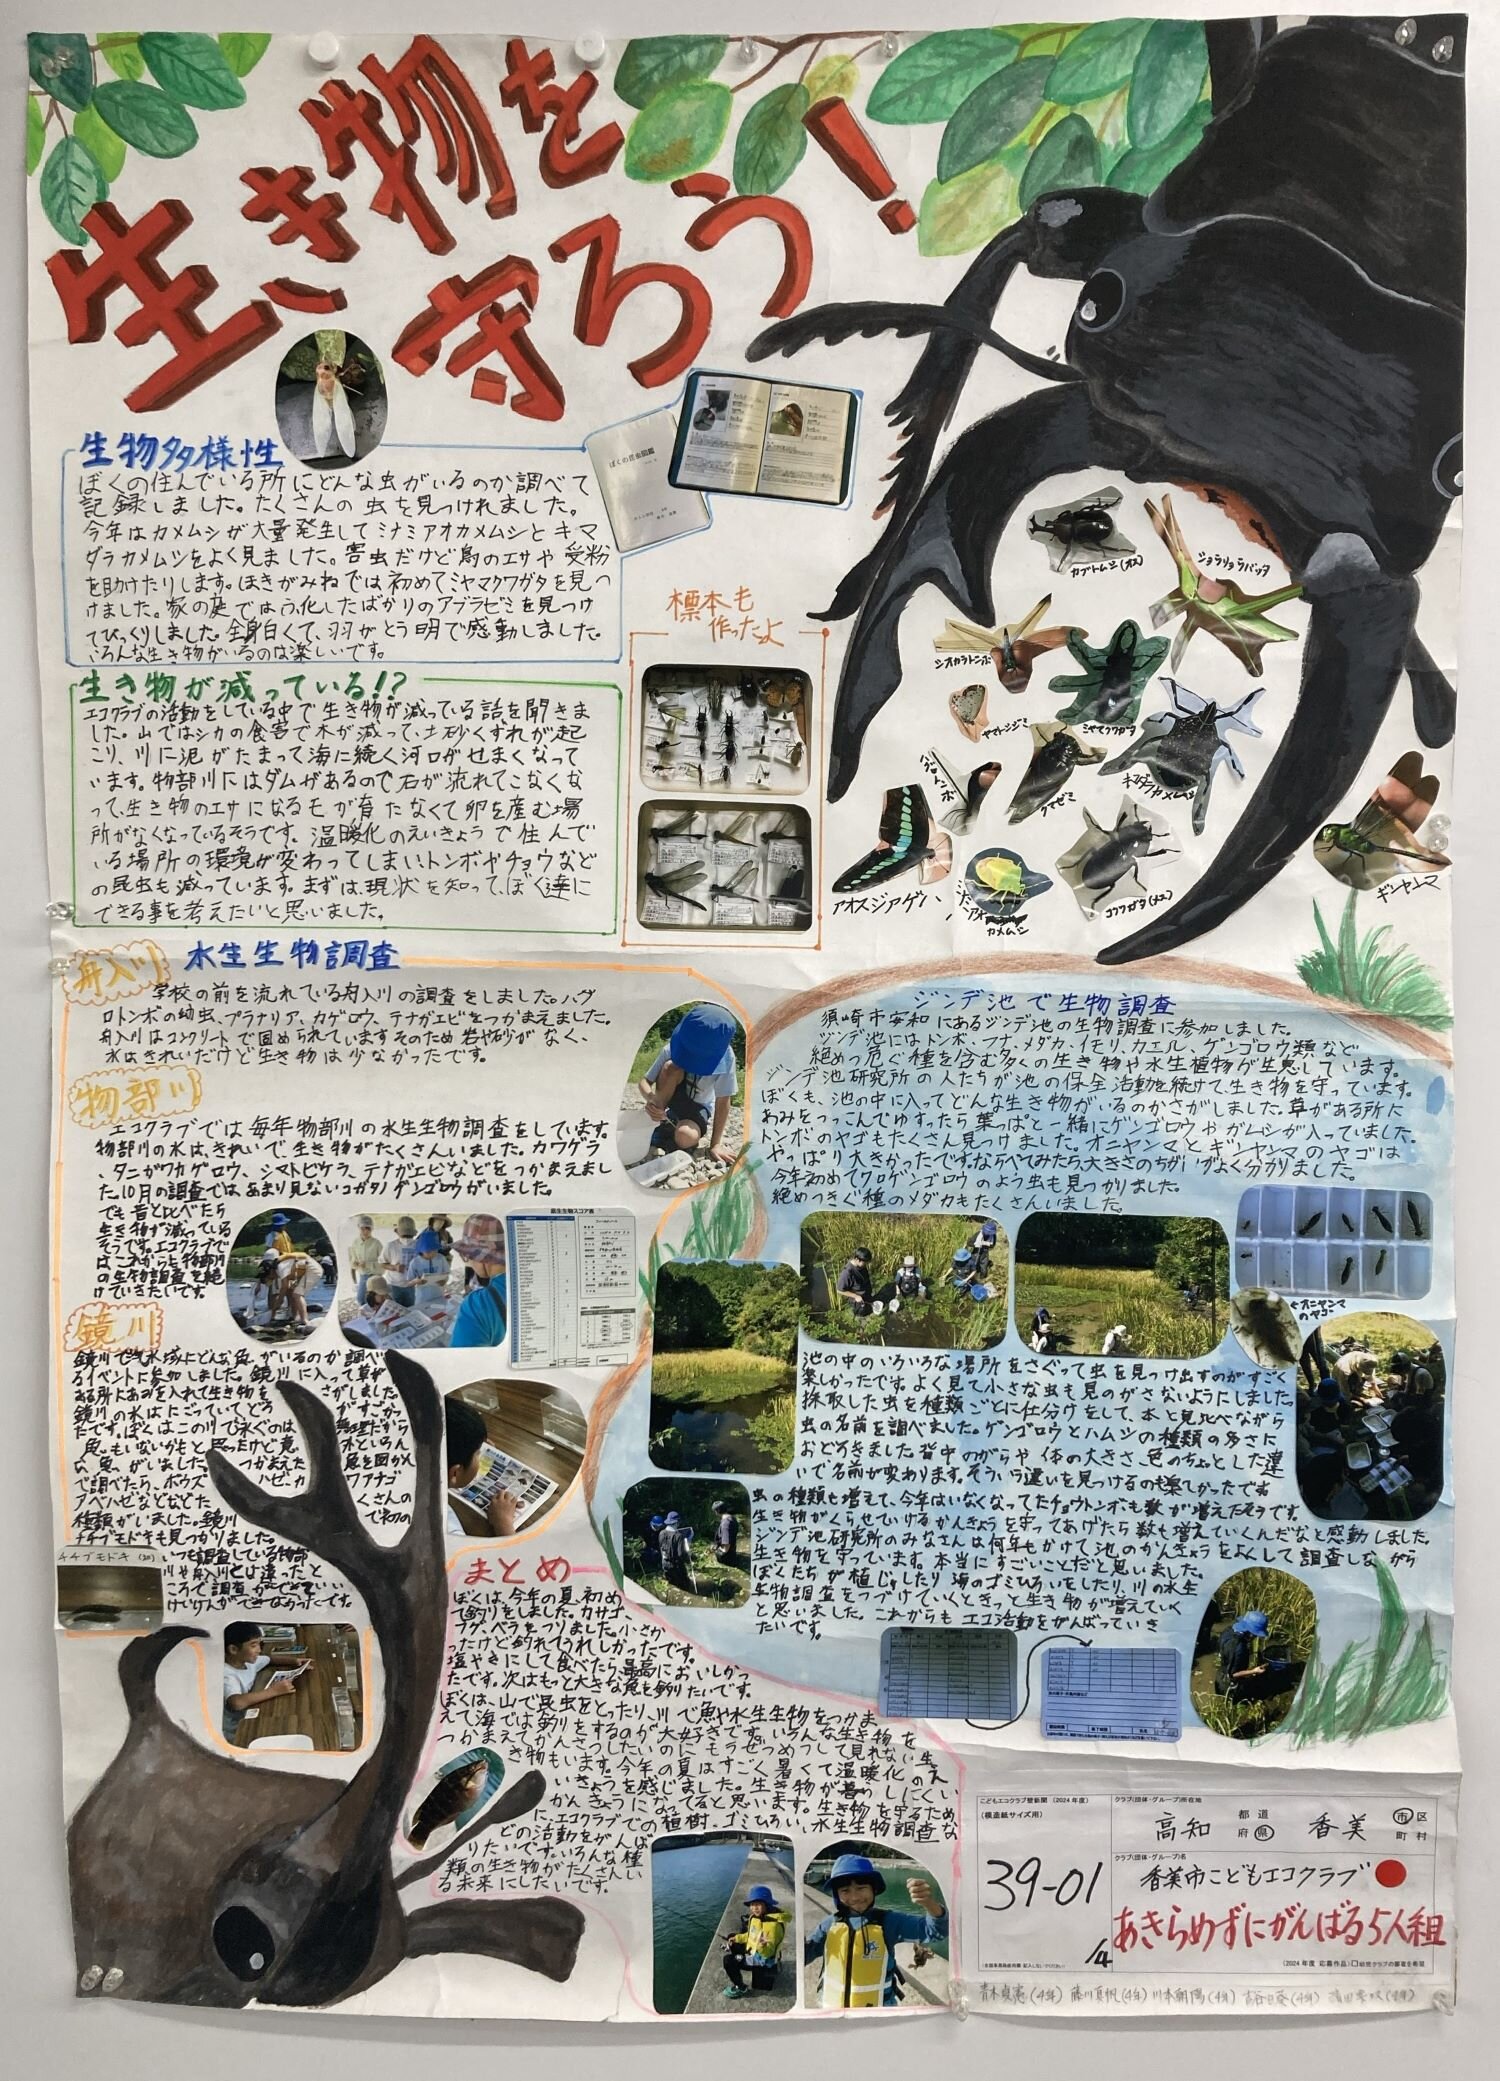 生き物を
守ろう!
生物多様性
ぼくの住んでいる所にどんな虫がいるのか調べて
記録しました。たくさんの虫を見つけれました。
今年はカメムシが大量発生してミナミアオカメムシとキマ
ダラカメムシをよく見ました。害虫だけど鳥のエサや受粉
を助けたりします。ほきがみねでは初めてミヤマクワガタを見つ
けました。家の庭ではふ化したばかりのアブラゼミを見つけ
てびっくりしました。全身白くて、羽がとう明で感動しました。
いろんな生き物がいるのは楽しいです。
ぼくの昆虫図鑑
標本も
作ったよ
生き物が減っている!?
エコクラブの活動をしている中で生き物が減っている話を聞きま
した。山ではシカの食害で木が減って、土砂くずれが起
こり、川に泥がたまって海に続く河口がせまくなって
います。物部川にはダムがあるので石が流れてこなくな
って、生き物のエサになるモが育たなくて卵を産む場
所がなくなっているそうです。温暖化のえいきょうで住んで
いる場所の環境が変わってしまい、トンボやチョウなど
の昆虫も減っています。まずは、現状を知って、ぼく達に
できる事を考えたいと思いました。
カブトムシ(オス)
ショウリョウバッタ
シオカラトンボ
ヤマトシジミ
ミヤマクワガタ
ハグロトンボ
クマゼミ
キマダラカメムシ
アオスジアゲハ
カメムシ
コクワガタ(メス)
ギンヤンマ
水生生物調査
舟入川
学校の前を流れている舟入川の調査をしました。ハグ
ロトンボの幼虫、プラナリア、カゲロウ、テナガエビをつかまえました。
舟入川はコンクリートで固められています そのため岩や砂がなく、
水はきれいだけど生き物は少なかったです。
物部川
エコクラブでは毎年物部川の水生生物調査をしています。
物部川の水は、きれいで、生き物がたくさんいました。カワゲラ
、タニガワカゲロウ、シマトビケラ、テナガエビなどをつかまえまし
た。10月の調査では、あまり見ないコガタノゲンゴロウがいました。
でも昔と比べたら
生き物が減っている
そうです。エコクラブで
はこれからも物部川
の生物調査を続
けていきたいです。
鏡川
鏡川で汽水域にどんな魚がいるのか調べ
るイベントに参加しました。鏡川に入って草が
ある所にあみを入れて生き物をさがしました。
鏡川の水はにごっていてどろがすごかっ
たです。ぼくはこの川で泳ぐのは無理だから
魚もいないかもと思ったけど意外といろん
な魚がいました。つかまえた魚を図かん
で調べたら、ボウズハゼ、カワアナゴ
アベハゼなどなどたくさんの
種類がいました。鏡川で初の
チチブモドキも見つかりました。
いつも調査している物部
川や舟入川とは違ったと
ころで調査ができていい
けいけんができなかったです。
ジンデ池で生物調査
須崎市安和にあるジンデ池の生物調査に参加しました。
ジンデ池にはトンボ、フナ、メダカ、イモリ、カエル、ゲンゴロウ類など
絶めつ危ぐ種を含む多くの生き物や水生植物が生息しています。
ジンデ池研究所の人たちが池の保全活動を続けて、生き物を守っています。
ぼくも、池の中に入ってどんな生き物がいるのかさがしました。草がある所に
あみをつっこんでゆすったら葉っぱと一緒にゲンゴロウやガムシが入っていました。
トンボのヤゴもたくさん見つけました。オニヤンマとギンヤンマのヤゴは
やっぱり大きかったです。ならべてみたら、大きさのちがいがよく分かりました。
今年初めてクロゲンゴロウのよう虫も見つかりました。
絶めつきぐ種のメダカもたくさんいました。
←オニヤンマ
のヤゴ
池の中のいろいろな場所をさぐって虫を見つけ出すのがすごく
楽しかったです。よく見て小さな虫も見のがさないようにしました
採取した虫を種類ごとに仕分けをして、本と見比べながら
虫の名前を調べました。ゲンゴロウとハムシの種類の多さに
おどろきました。背中のがらや体の大きさ、色のちょっとした違
いで名前が変わります。そういう違いを見つけるのも楽しかったです
虫の種類も増えて、今年はいなくなってたチョウトンボも数が増えたそうです。
生き物がくらせていけるかんきょうを守ってあげたら数も増えていくんだなと感動しました。
ジンデ池研究所のみなさんは何年もかけて池のかんきょうをよくして調査しながら
生き物を守っています。本当にすごいことだと思いました。
ぼくたちが植じゅしたり海のゴミひろいをしたり、川の水生
生物調査をつづけていくときっと生き物が増えていく
と思いました。これからもエコ活動をがんばっていき
たいです。
まとめ
ぼくは、今年の夏、初め
て釣りをしました。カサゴ、
フグ、ベラをつりました。小さか
ったけど釣れてうれしかったです。
塩やきにして食べたら、最高においしかっ
たです。次はもっと大きな魚を釣りたいです。
ぼくは、山で昆虫をとったり、川で魚や水生生物をつかま
えて海では釣りをするのが大好きです。いろんな生き物を
つかまえてかんさつしたいのにもうぜつめつして見れない生
き物もいます。今年の夏はすごく暑くて温暖化のえ
いきょうを感じました。生き物が暮らしにくい
かんきょうになってると思います。生き物を守るため
に、エコクラブでの植樹、ゴミひろい、水生生物調査な
どの活動をがんば
りたいです。いろんな種
類の生き物がたくさんい
る未来にしたいです。
こどもエコクラブ壁新聞(2024年度)
(模造紙サイズ用)
39-01
/4
クラブ(団体・グループ)所在地
高知 都道府県 香美 市区町村
クラブ(団体・グループ)名
香美市こどもエコクラブ
あきらめずにがんばる5人組
(2024年度 応募作品)